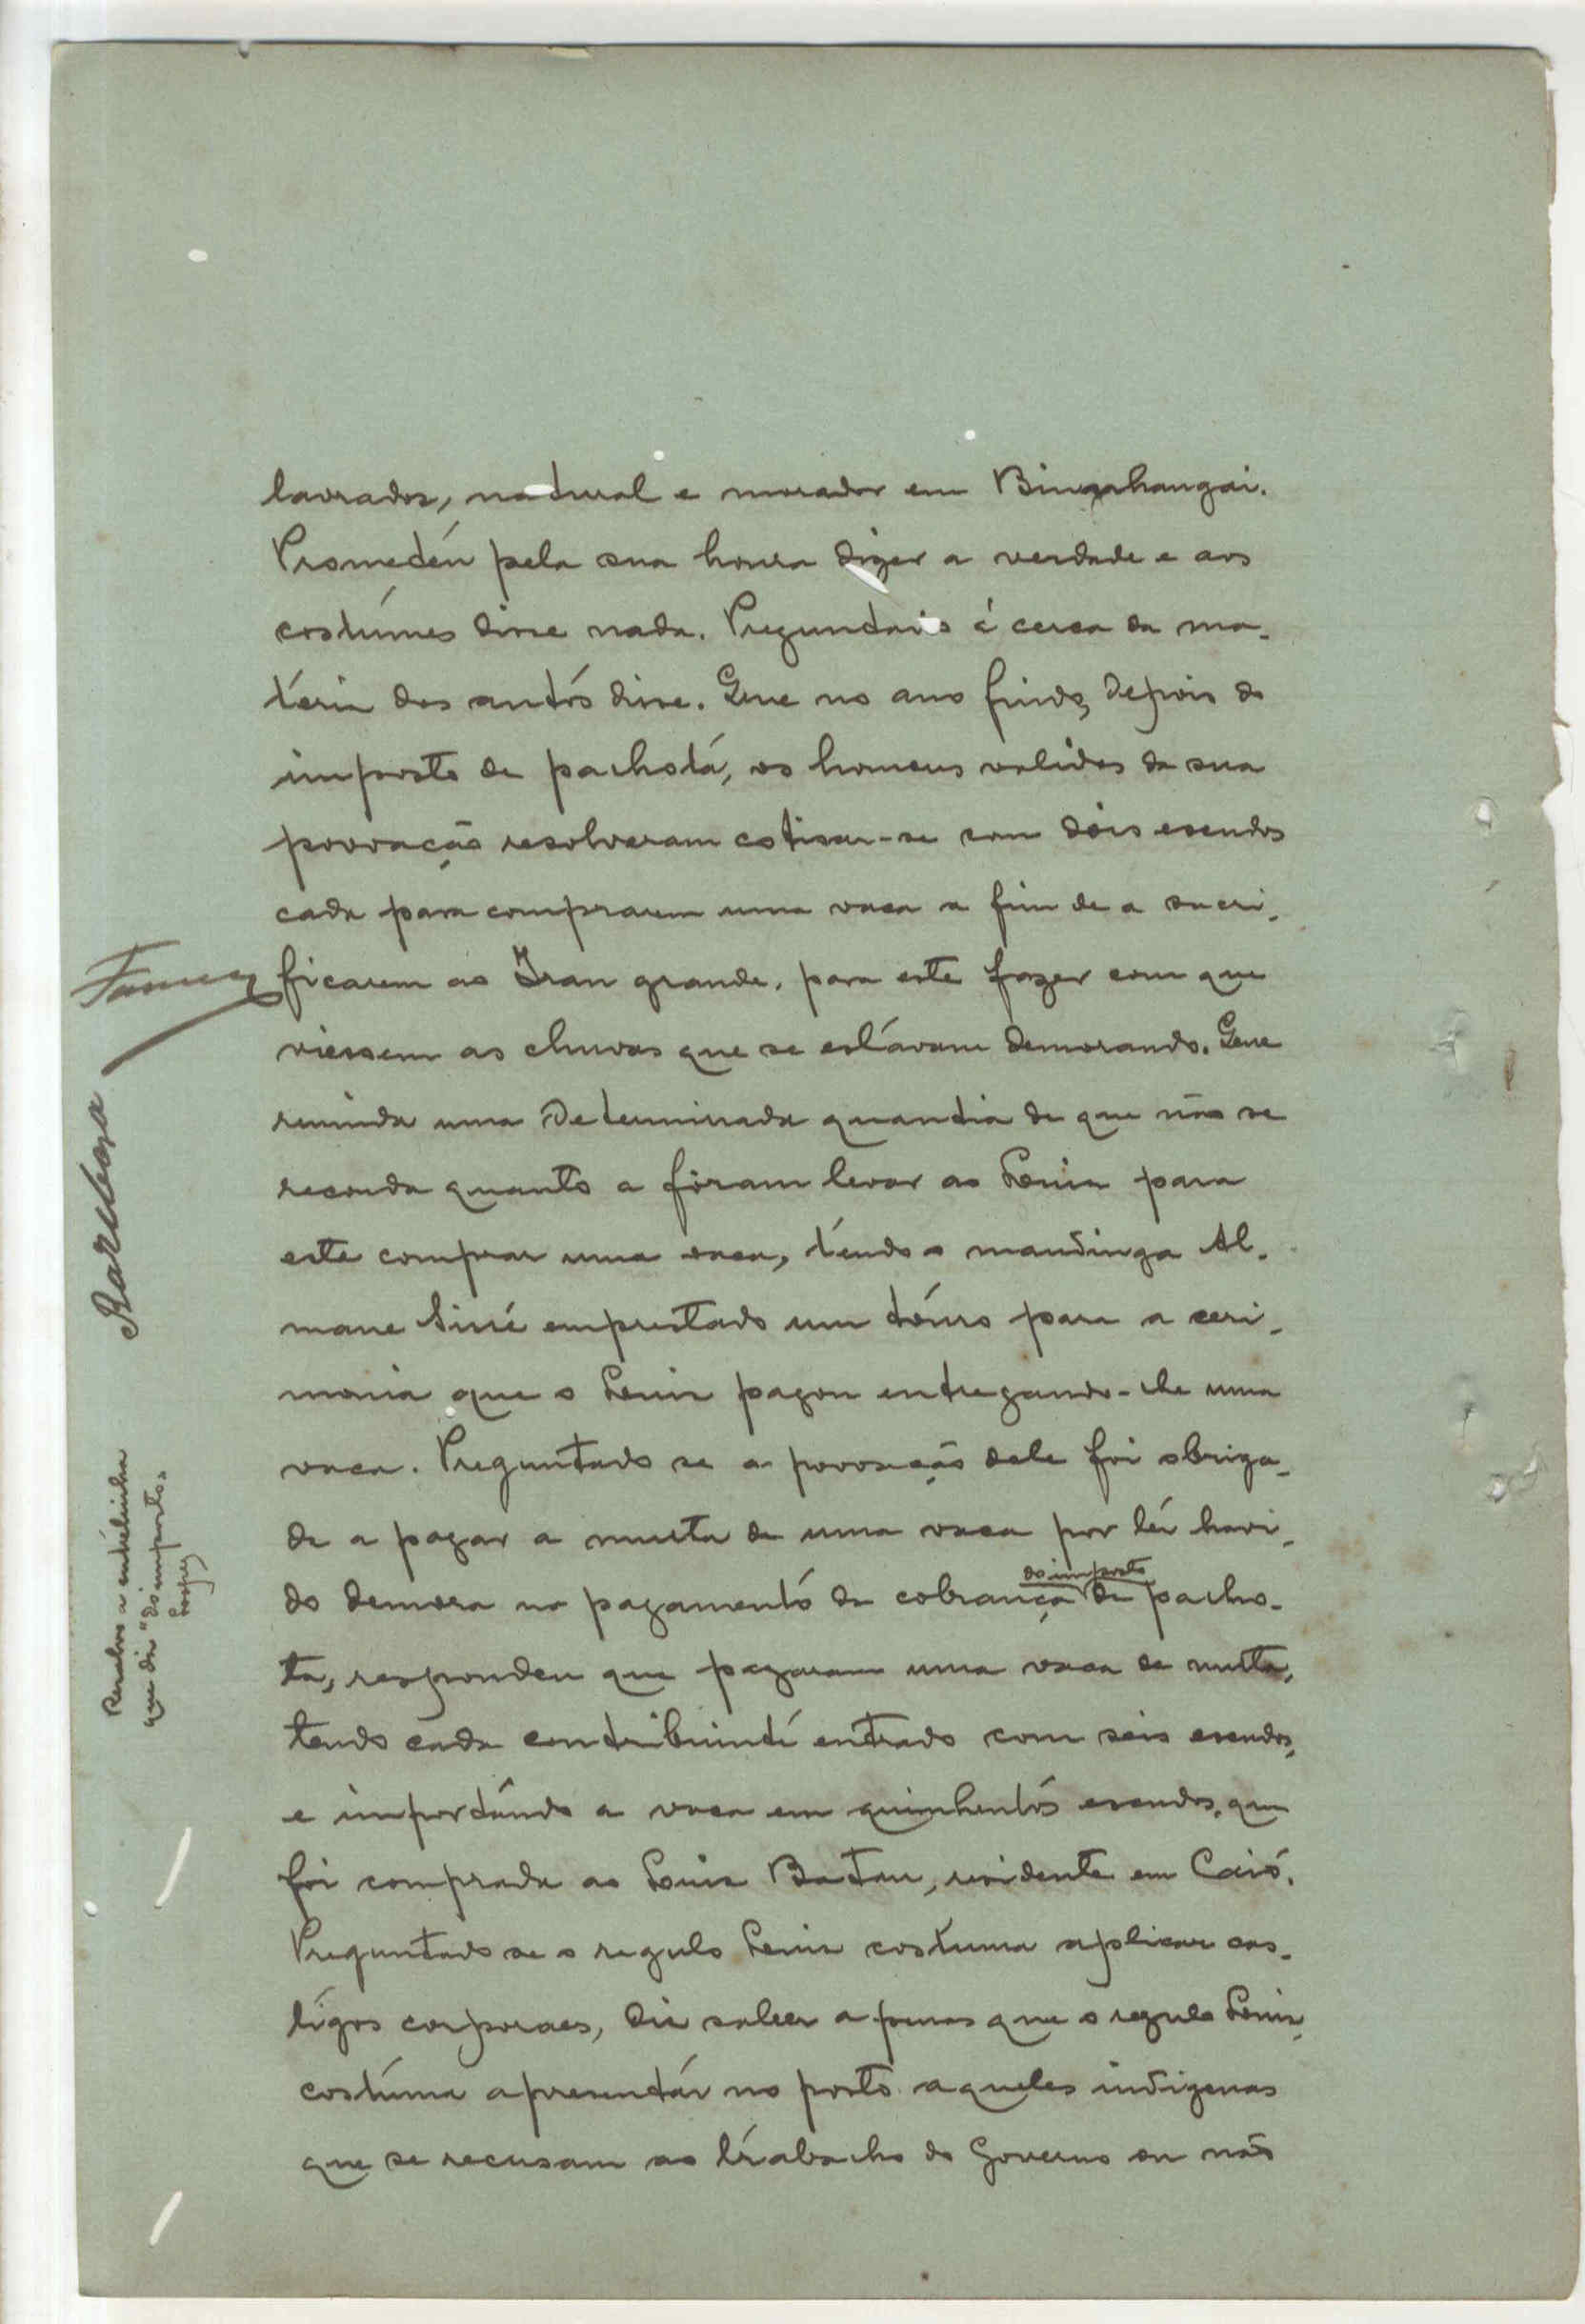 lavrador, natural e morador em Bingahangai.
Prometeu pela sua honra dizer a verdade e aos
costumes disse nada. Preguntado á cerca da ma-
teria dos autos disse. Que no ano findo, depois do
imposto de pachotá, os homens validos da sua
povoação resolveram cotisar-se com dois escudos
cada para comprarem uma vaca a fim de a sacri-
ficarem ao Iran grande, para este fazer com que
viessem as chuvas que se estávam demorando. Que
reunida uma determinada quantia de que não se
recorda quanto a fôram levar ao Lenin para
este comprar uma vaca, tendo o mandinga Al-
mane Sissé emprestado um touro para a ceri-
monia que o Lenin pagou entregando-lhe uma
vaca. Preguntado se a povoação dele foi obriga-
da a pagar a multa de uma vaca por têr havi-
do demora no pagamento da cobrança do imposto de pacho-
ta, respondeu que pagaram uma vaca de multa,
tendo cada contribuinte entrado com seis escudos,
e importândo a vaca em quinhentos escudos, que
foi comprada ao Luis Batau, residente em Caió.
Preguntado se o regulo Lenin costuma aplicar cas-
tigos corporaes, diz saber apenas que o regulo Lenin,
costuma apresentár no posto aqueles indigenas
que se recusam ao trabacho do Governo ou não
Barbosa
Resalvo a entrelinha
que diz "do imposto.
Lopes